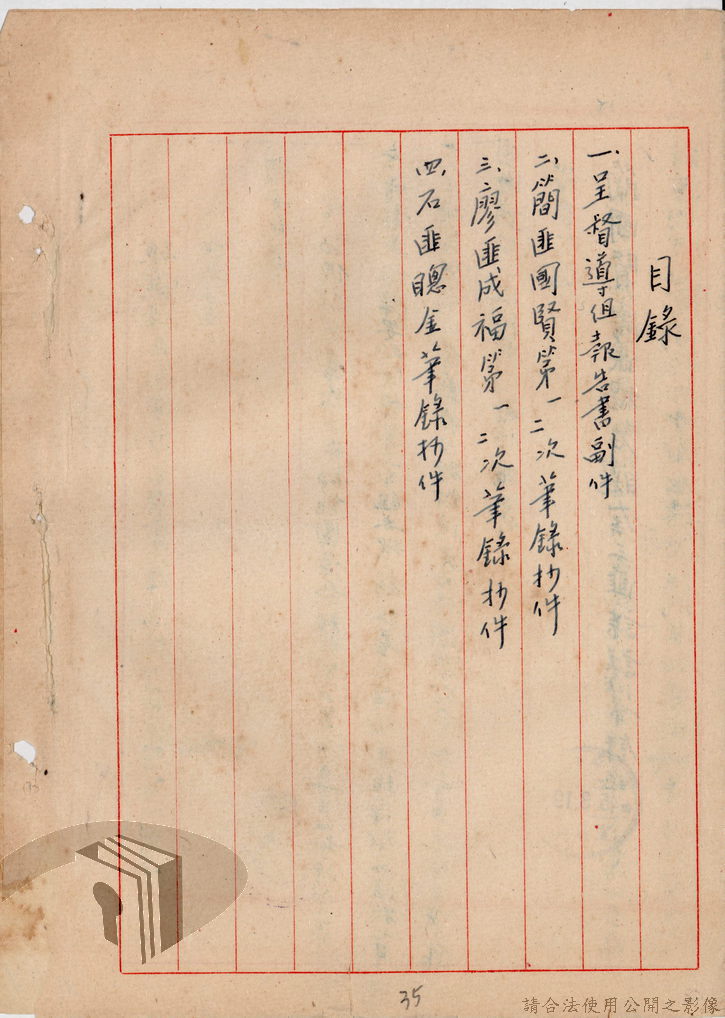 目錄
一、呈督導組報告書副件
二、簡匪國賢第一二次筆錄抄件
三、廖匪成福第一二次筆錄抄件
四、石匪聰金筆錄抄件
35
請合法使用公開之影像